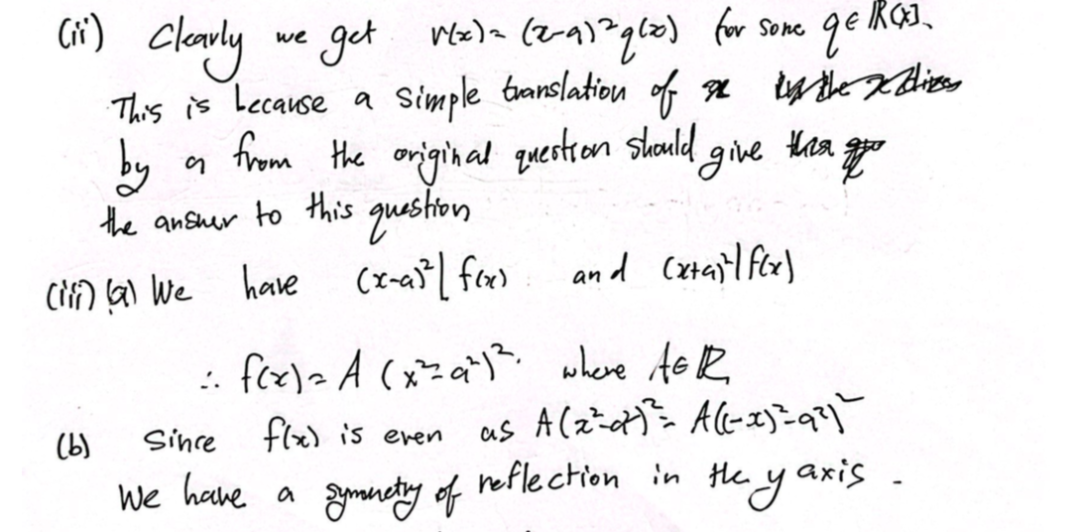 (ii) Clearly we get r(x)= (x-a)²q(x) for some q∈ℝ[x].
This is because a simple translation of x
by a from the original question should give
the answer to this question
(iii) (a) We have (x-a)²| f(x) and (x+a)²| f(x)
∴ f(x)= A (x²-a²)². where A∈ℝ
(b) Since f(x) is even as A(x²-a²)²= A((-x)²-a²)²
We have a symmetry of reflection in the y axis.